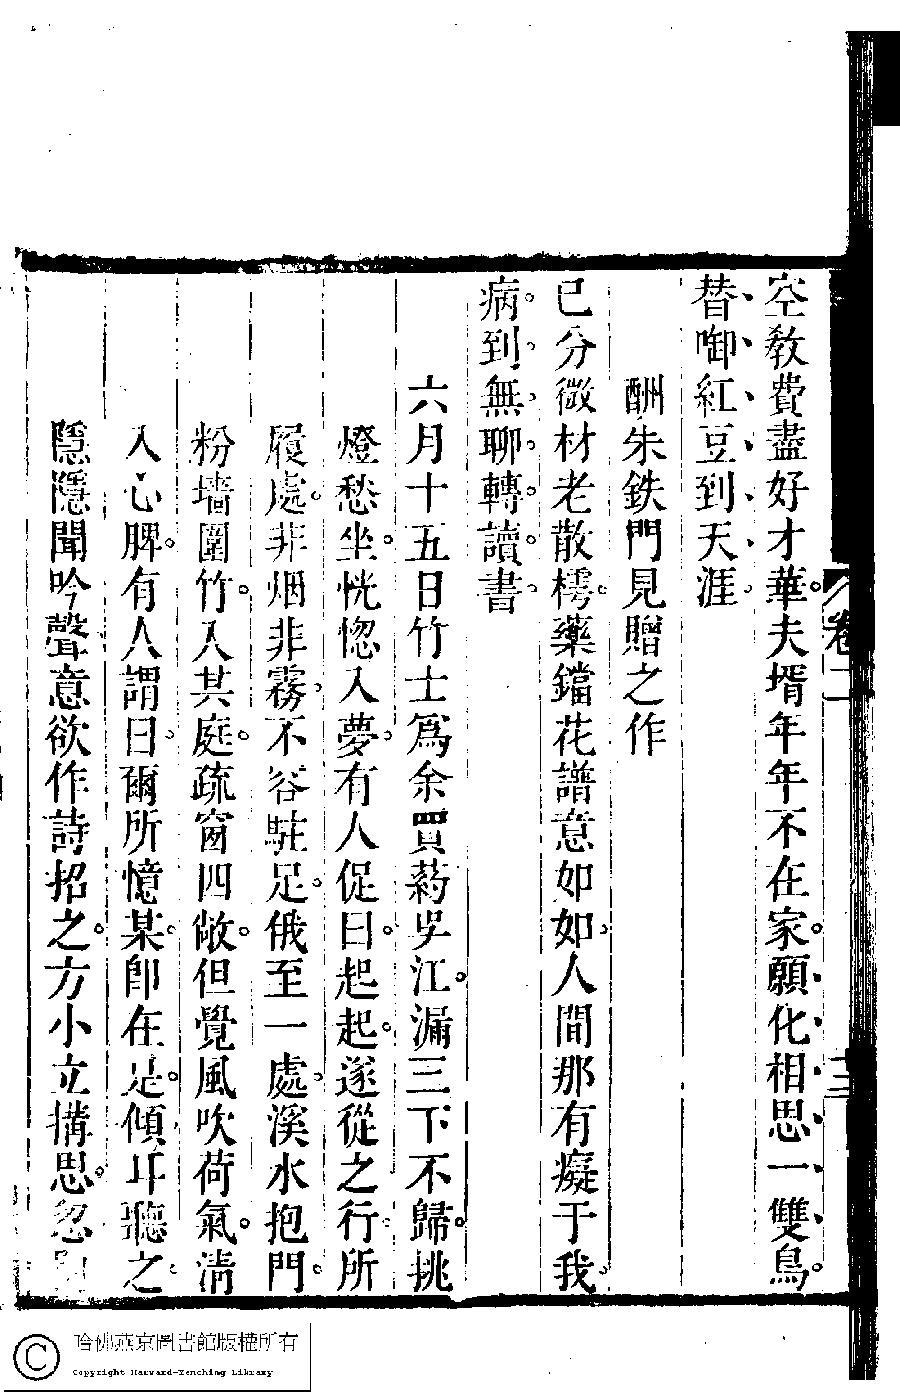 空敎費盡好才華。夫壻年年不在家。願化相思一雙鳥。
替啣紅豆到天涯。
酬朱鉄門見贈之作
已分微材老散樗。藥鐺花譜意如如。人間那有癡于我。
病到無聊轉讀書。
六月十五日竹士爲余買葯吳江。漏三下不歸。挑
燈愁坐。恍惚入夢。有人促曰。起起。遂從之行。所
履處。非烟非霧。不容駐足。俄至一處。溪水抱門。
粉墻圍竹。入其庭。疏窗四敞。但覺風吹荷氣。清
入心脾。有人謂曰。爾所憶某。卽在是。傾耳聽之。
隱隱聞吟聲意欲作詩招之。方小立搆思。忽
卷二
十三
哈佛燕京圖書館版權所有
Copyright Harvard-Yenching Library